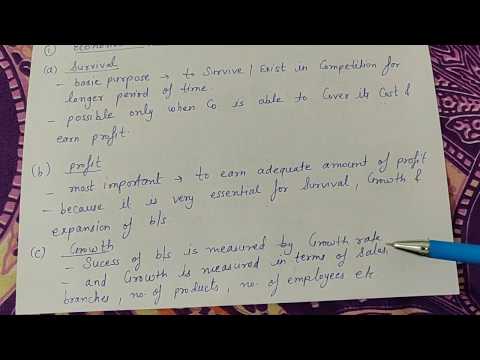 (i) Economic
(a) Survival
- basic purpose → to Survive / Exist in Competition for
longer period of time.
- possible only when Co is able to Cover its Cost &
earn profit.
(b) profit
- most important → to earn adequate amount of profit
- because it is very essential for Survival, Growth &
expansion of b/s
(c) Growth
- Sucess of b/s is measured by Growth rate
- and Growth is measured in terms of Sales,
branches, no. of products, no. of employees etc